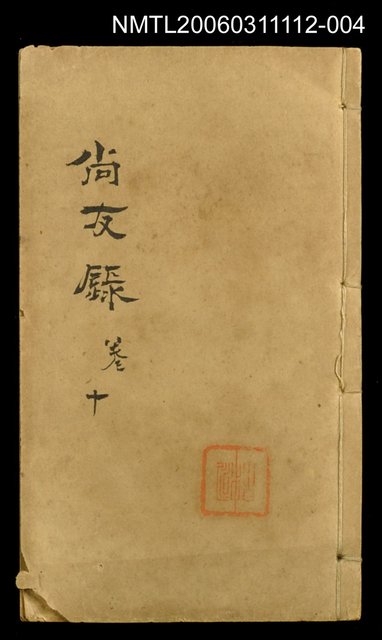 NMTL20060311112-004
尚友錄
卷十